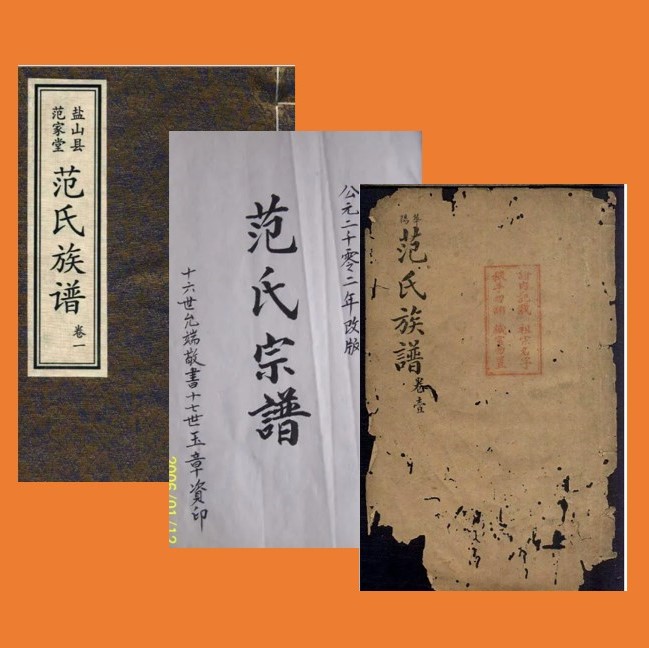 盐山县
范家堂
范氏族谱
卷一
公元二十零二年改版
范氏宗譜
十六世允端敬書十七世玉章資印
2006/01/12
范氏族譜
卷壹
祖宗名字